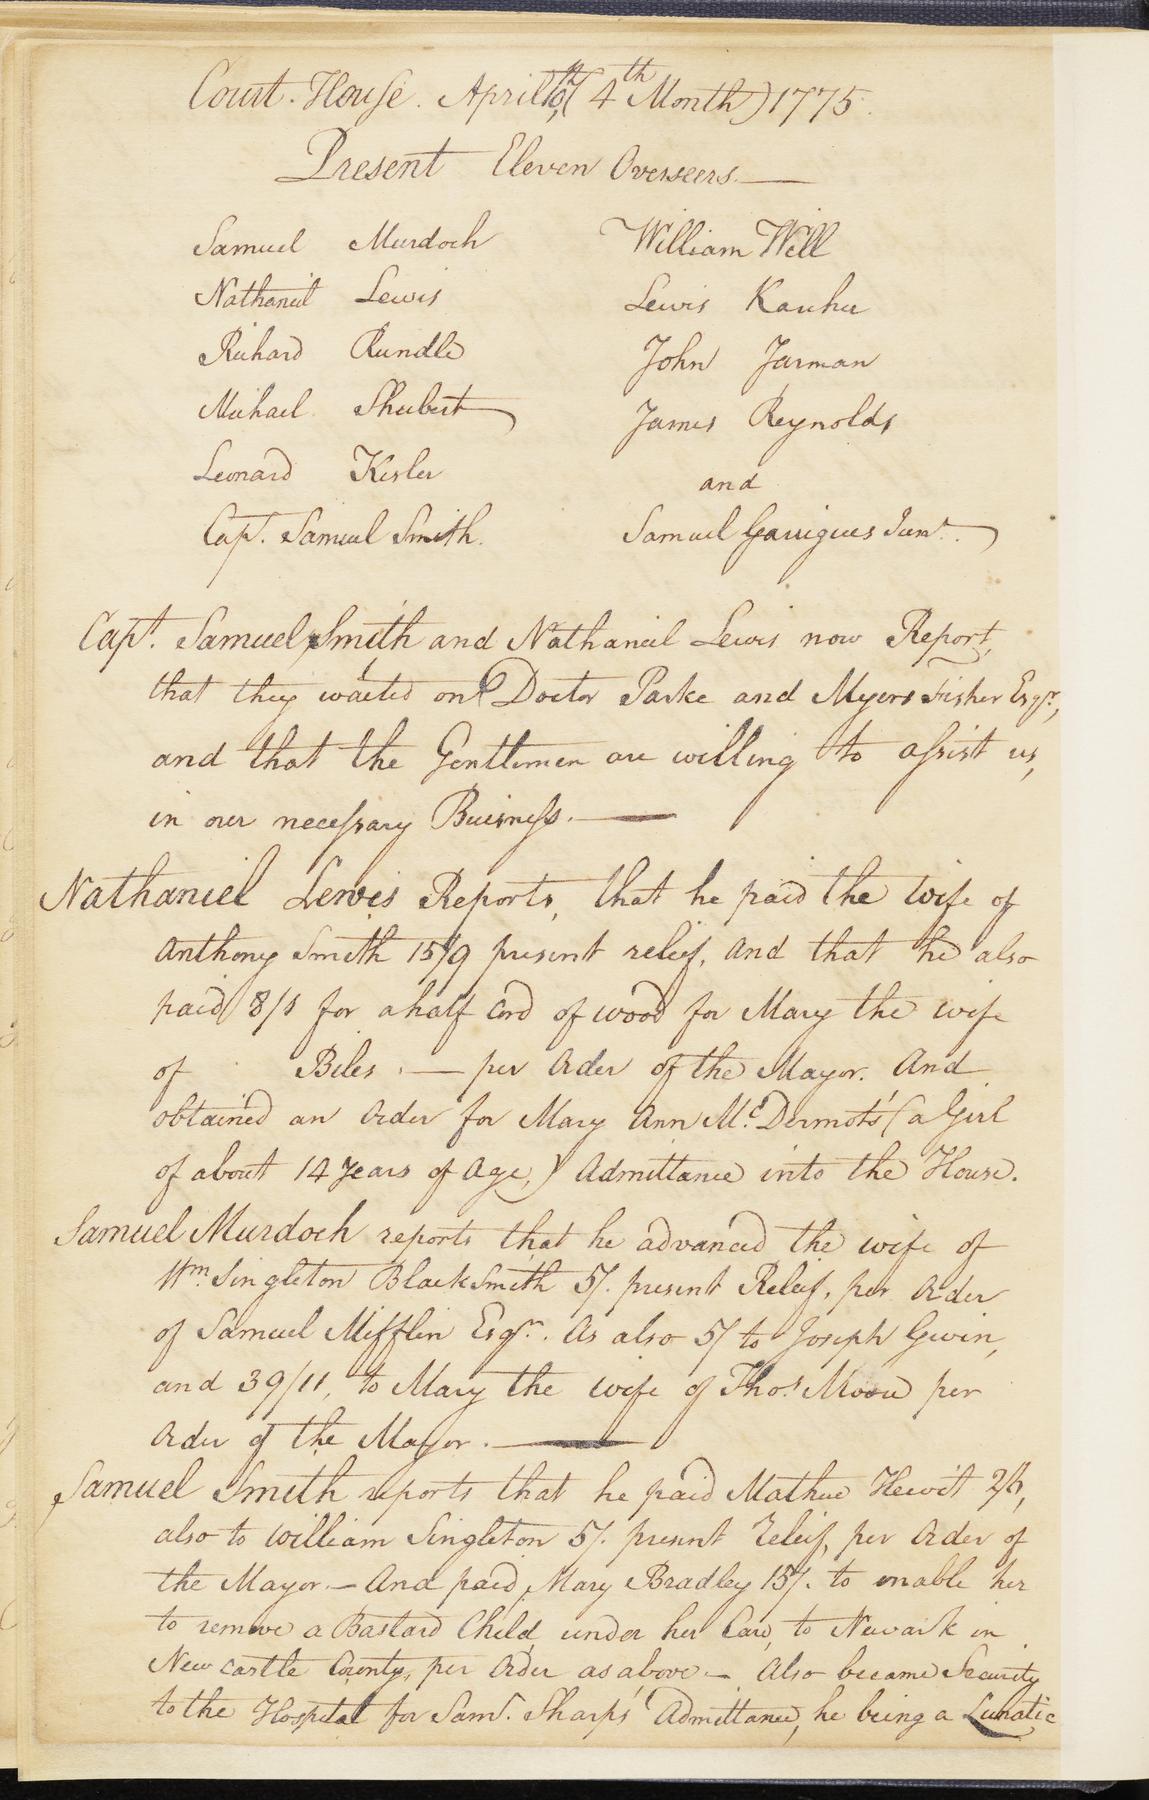 Court-House. April 6th, (4th Month) 1775.
Present Eleven Overseers.—
Samuel Murdoch William Will
Nathaniel Lewis Lewis Karcher
Richard Rundle John Jarman
Michael Shubert James Reynolds
Leonard Kesler and
Capt. Samuel Smith. Samuel Garrigues Junr.
Capt. Samuel Smith and Nathaniel Lewis now Report,
that they waited on Doctor Parke and Myers Fisher Esqr.,
and that the Gentlemen are willing to assist us,
in our necessary Buisness.—
Nathaniel Lewis Reports, that he paid the wife of
Anthony Smith 15/9 present releif, and that he also
paid 8/8 for a half Cord of wood for Mary the wife
of Biles.— per Order of the Mayor. And
obtained an Order for Mary Ann Mc.Dermots' (a Girl
of about 14 Years of Age,) Admittance into the House.
Samuel Murdoch reports that he advanced the wife of
Wm. Singleton BlackSmith 5/. present Releif, per Order
of Samuel Mifflin Esqr. As also 5/ to Joseph Gwin,
and 39/11, to Mary the wife of Thos. Moore per
Order of the Mayor.—
Samuel Smith reports that he paid Mathew Hewit
also to William Singleton 5/. present releif, per Order of
the Mayor.— And paid, Mary Bradley 15/. to enable her
to remove a Bastard Child, under her Care, to Newark in
New Castle County, per Order as above.— Also became Security
to the Hospital for Saml. Sharps' Admittance, he being a Lunatic